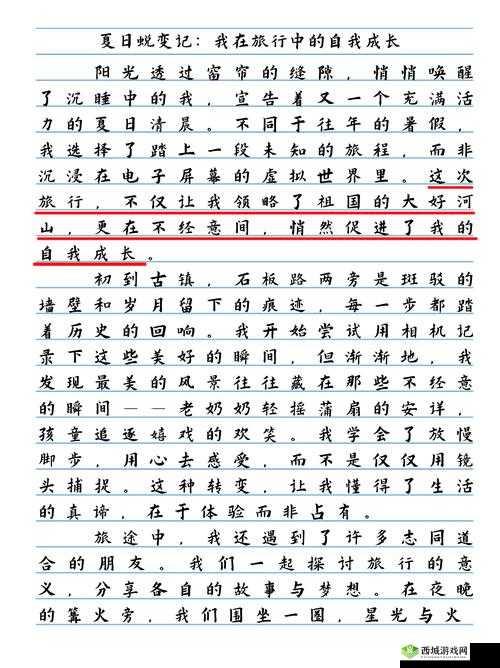 夏日蜕变记：我在旅行中的自我成长
阳光透过窗帘的缝隙，悄悄唤醒
了沉睡中的我，宣告着又一个充满活
力的夏日清晨。不同于往年的暑假，
我选择了踏上一段未知的旅程，而非
沉浸在电子屏幕的虚拟世界里。这次
旅行，不仅让我领略了祖国的大好河
山，更在不经意间，悄然促进了我的
自我成长。
初到古镇，石板路两旁是斑驳的
墙壁和岁月留下的痕迹，每一步都踏
着历史的回响。我开始尝试用相机记
录下这些美好的瞬间，但渐渐地，我
发现最美的风景往往藏在那些不经意
的瞬间——老奶奶轻摇蒲扇的安详，
孩童追逐嬉戏的欢笑。我学会了放慢
脚步，用心去感受，而不是仅仅用镜
头捕捉。这种转变，让我懂得了生活
的真谛，在于体验而非占有。
旅途中，我还遇到了许多志同道
合的朋友。我们一起探讨旅行的意
义，分享各自的故事与梦想。在夜晚
的篝火旁，我们围坐一圈，星光与火
西城游戏网